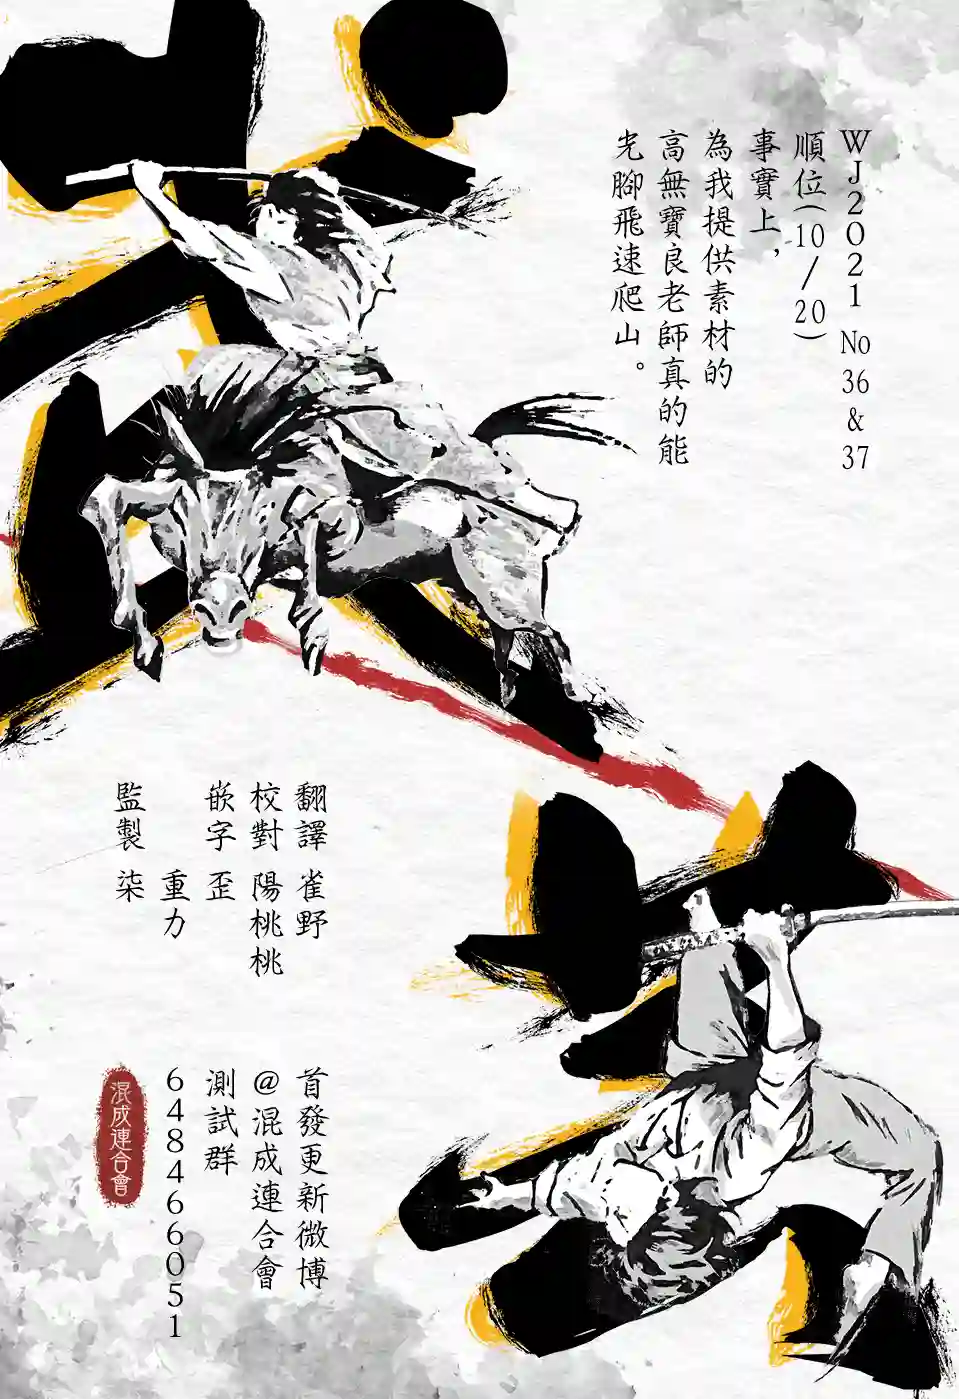 WJ2021 No 36 & 37
順位(10/20)
事實上，
為我提供素材的
高無寶良老師真的能
光腳飛速爬山。
翻譯 雀野
校對 陽桃桃
嵌字 歪
重力
監製 柒
首發更新微博
@混成連合會
測試群
648466051
混成連合會